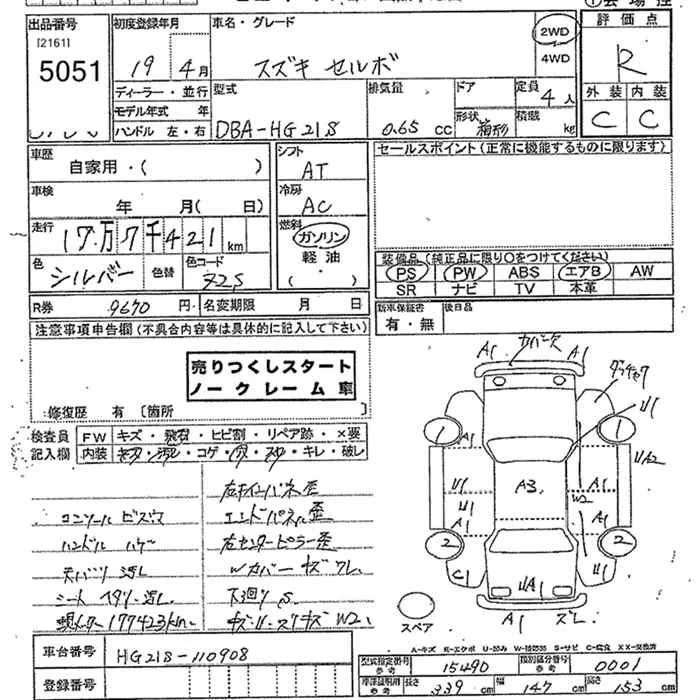 出品番号
[2161]
5051
初度登録年月
19 4月
ディーラー・並行
モデル年式 年
ハンドル 左・右
車名・グレード
スズキ セルボ
2WD
4WD
型式
DBA-HG21S
排気量
0.65 cc
ドア
形状
箱形
定員
4人
積載
kg
評価点
R
外装 内装
C C
車歴
自家用・( )
車検
年 月( 日)
走行
17万7千421km
色
シルバー
色替
色コード
Z2S
シフト
AT
冷房
AC
燃料
ガソリン
軽油
( )
セールスポイント(正常に機能するものに限ります)
装備品(純正品に限り○をつけてください)
PS PW ABS エアB AW
SR ナビ TV 本革
R券 9670円
名変期限 月 日
新車保証書
有・無
後日品
注意事項申告欄(不具合内容等は具体的に記入して下さい)
売りつくしスタート
ノークレーム車
修復歴 有 [箇所
検査員
記入欄
FW キズ・飛石・ヒビ割・リペア跡・×要
内装 キズ・汚れ・コゲ・穴・スリ・キレ・破レ
コンソール ビス穴
ハンドル ハゲ
天バリ 汚レ
シート ヘタリ・汚レ
現メーター 177423km
右サイドパネル歪
エンドパネル歪
右センターピラー歪
Wカバー キズ ワレ
下廻り S
車台番号
HG21S-110908
登録番号
A1
A1
U1
1
1
A1
U1
U1
A1
A3
W2
A1
A1
UA2
2
2
C1
UA1
U1
A1
ズレ
スペア
A-キズ E-エクボ U-凹み W-補修跡 S-サビ C-腐食 XX-交換済
型式指定番号
参考
15490
類別区分番号
参考
0001
車庫証明用
参考
長さ
339cm
幅
147cm
高さ
153cm